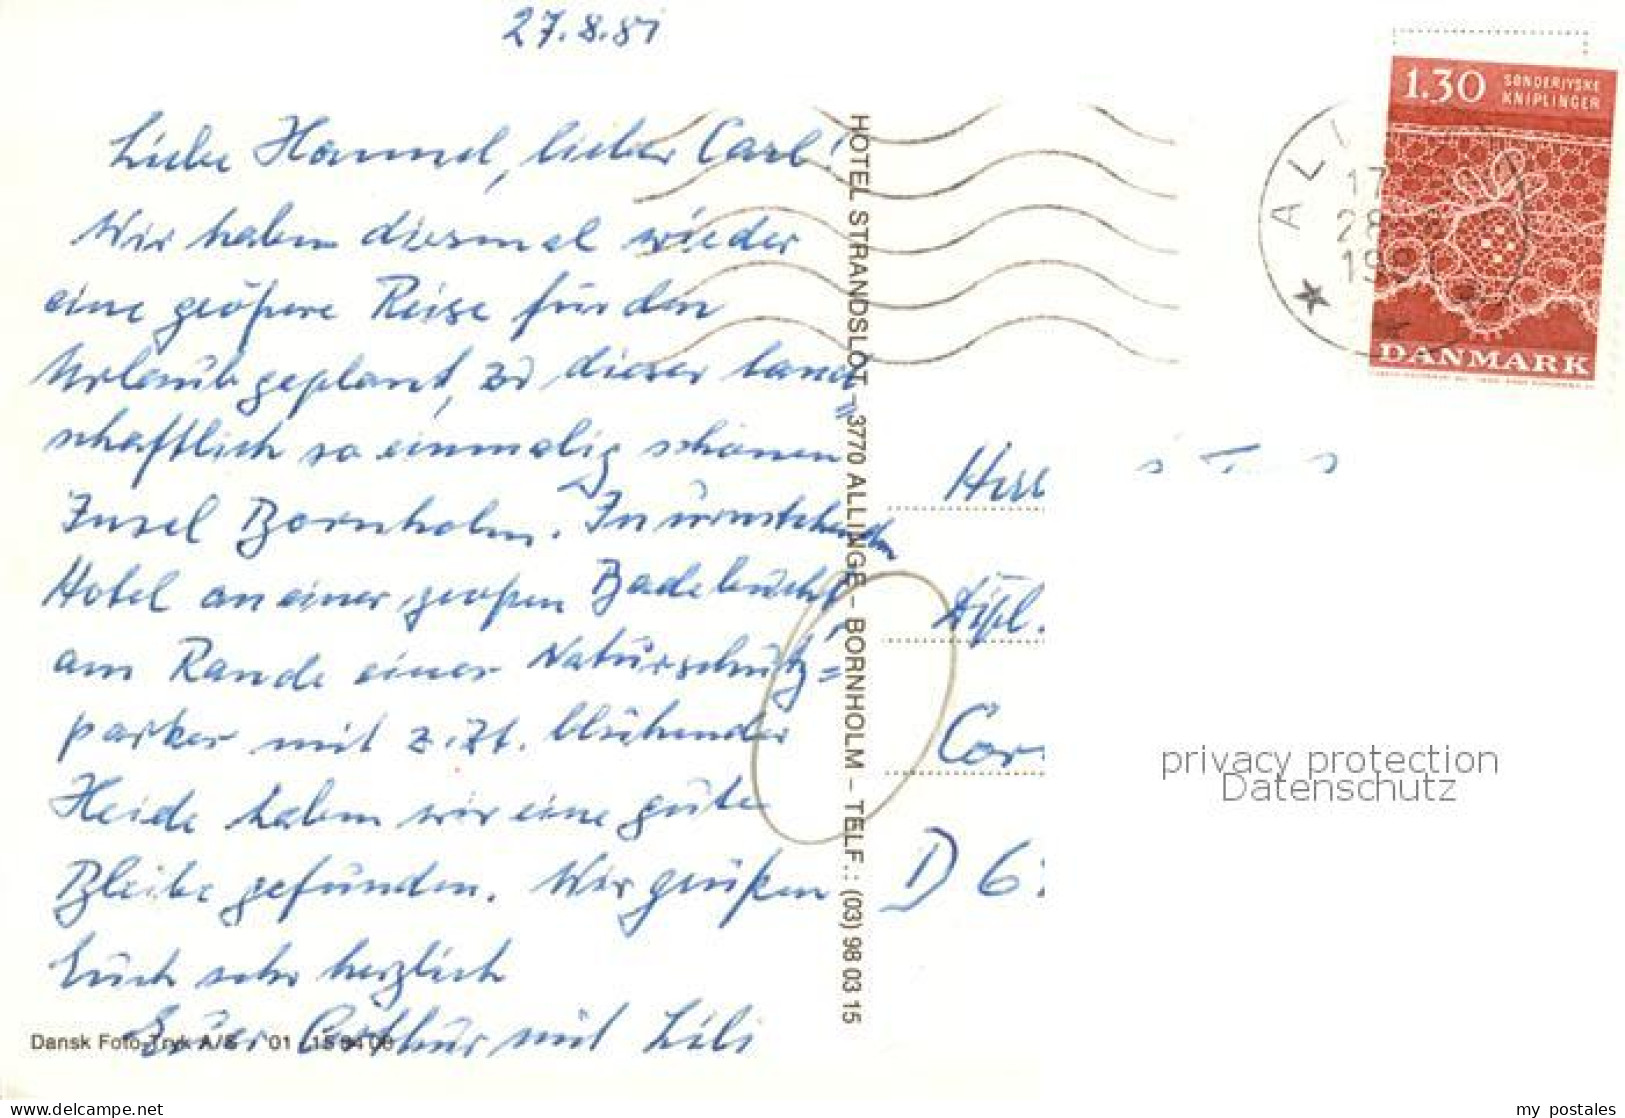 27.8.81
Liebe Hannel, lieber Carl!
Wir haben diesmal wieder
eine größere Reise für den
Urlaub geplant, zu dieser land=
schaftlich so einmalig schönen
Insel Bornholm. In umstehenden
Hotel an einer großen Badebucht
am Rande eines Naturschutz=
parkes mit z. Zt. blühender
Heide haben wir eine gute
Bleibe gefunden. Wir grüßen
Euch sehr herzlich
Euer Arthur mit Lili
Dansk Foto-Tryk A/S
HOTEL STRANDSLOT – 3770 ALLINGE – BORNHOLM – TELF.: (03) 98 03 15
1.30 SØNDERJYSKE
KNIPLINGER
DANMARK
ALI
17
28
19
Herr
Dipl.
Cor
D 6
privacy protection
Datenschutz
my postales